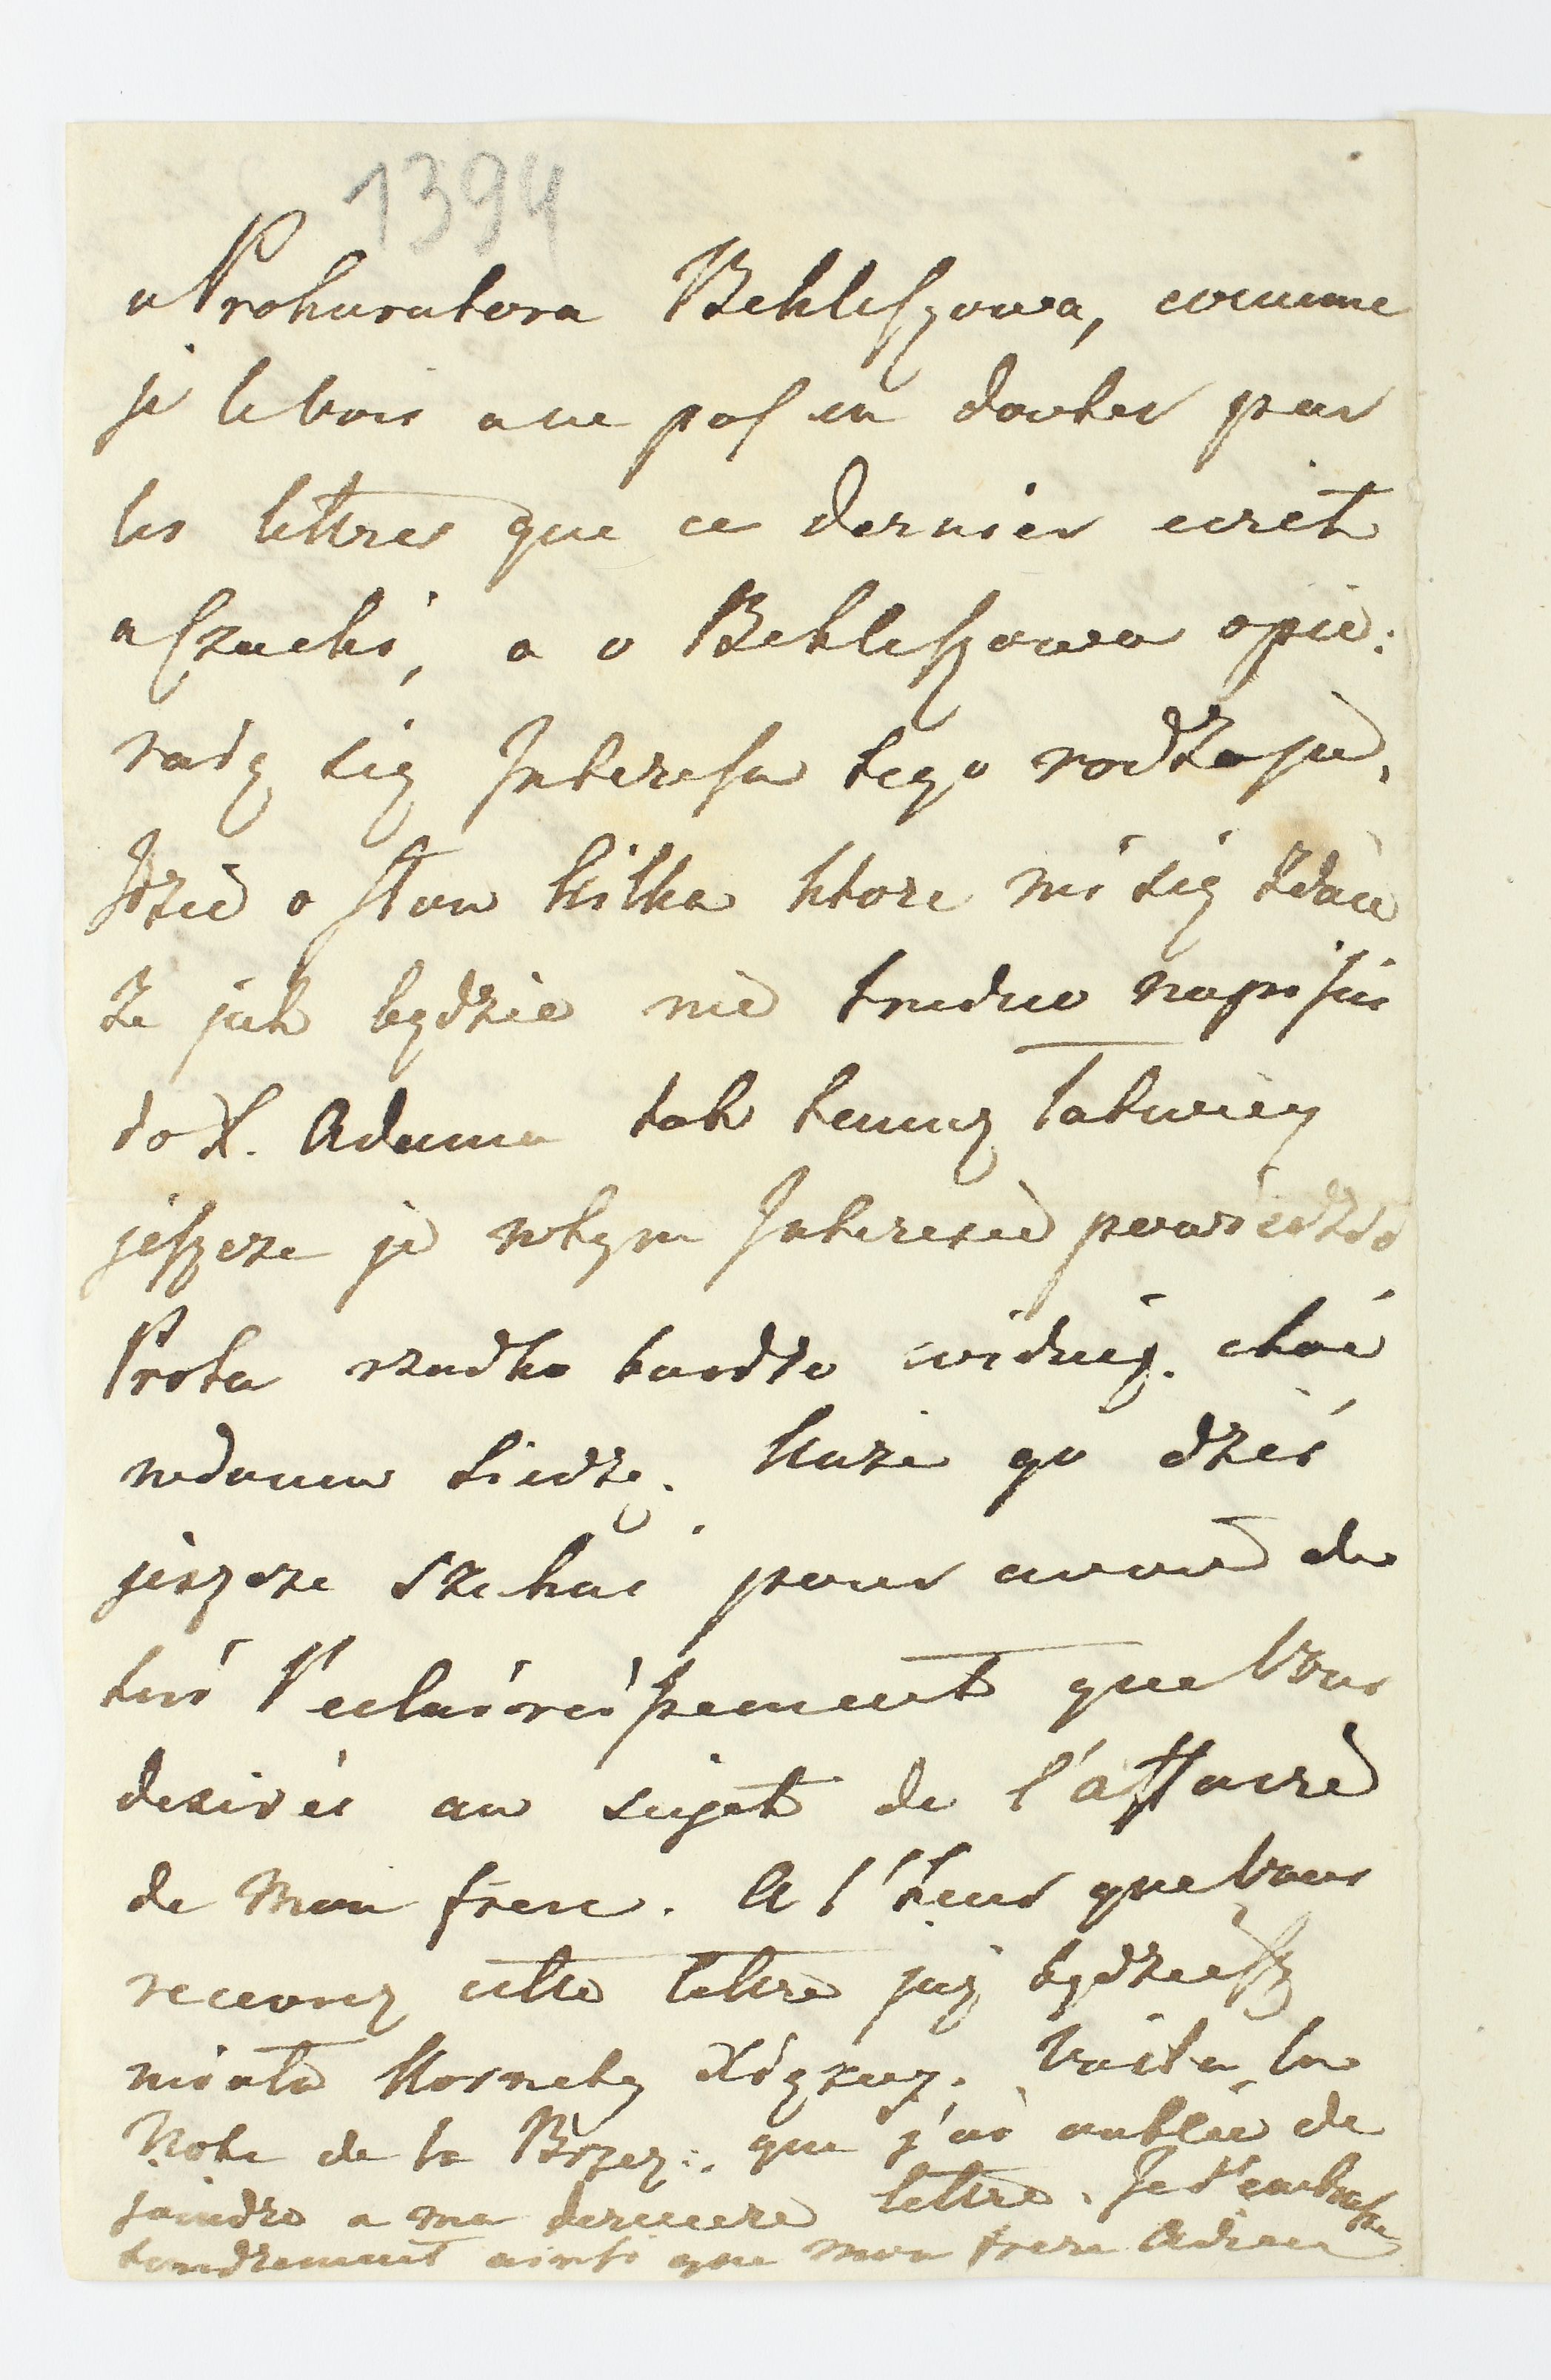 1394
u Prokuratora Bekleszowa, comme
je le vois a ne pas en douter par
les lettres que ce dernier ecrit
a Szacki, a o Bekleszowa opie:
raią się Interesa tego rodzaju,
Idzie o słow kilka ktore mi się zdaie
że jak będzie nie trudno napisać
do X. Adama tak temuż łatwiey
jeszcze je w tym Interesie powiedzieć
Prota rzadko bardzo widuię, choć
w domu siedzę. Każe go dziś
jeszcze szukać pour avoir de
lui l'eclaircissement que Vous
desirés au sujet de l'affaire
de Mon frere. A l'heur que Vous
recevrez cette lettre już będziesz
miała Kornetę Xiężney. Voila la
Note de la Brzez:. que j'ai oubliée de
joindre a ma derniere lettre. Je t'embrasse
tendrement ainsi que mon frere Adieu